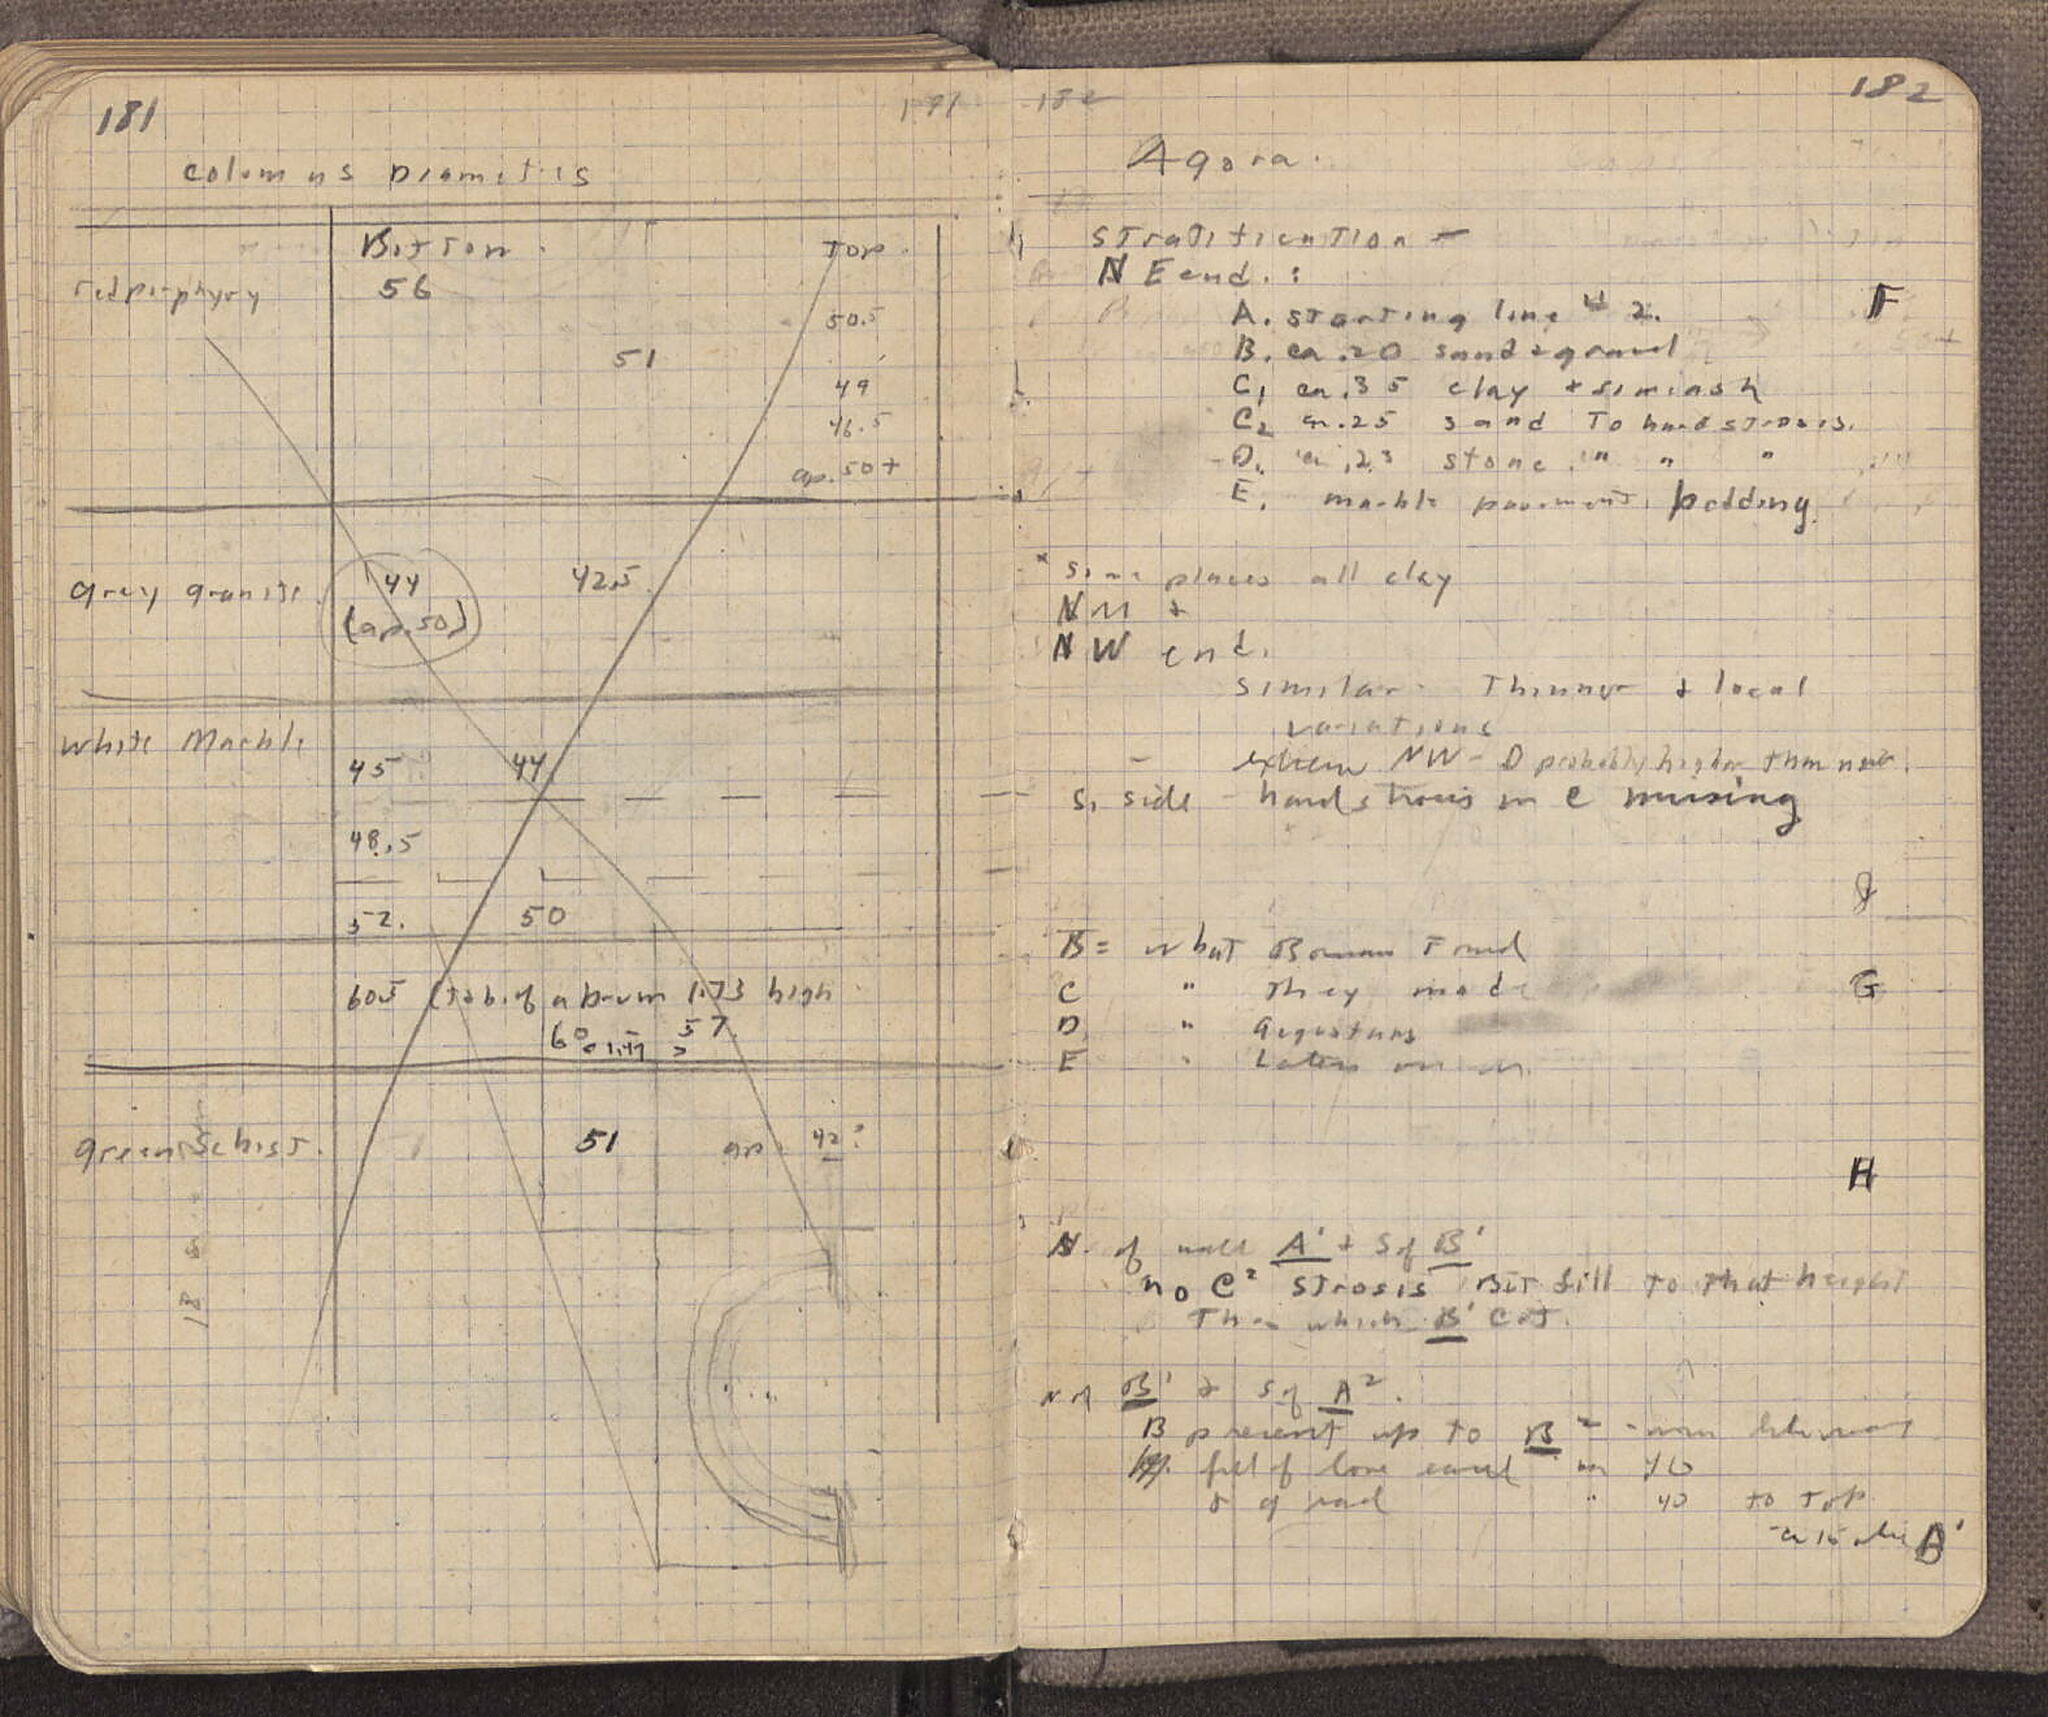 181
Columns Diametirs
Bottom. Top.
red porphyry 56
50.5
51
49
46.5
ap. 50+
grey granite. 44 42.5
(ap. 50)
White Marble
45 44
48.5
52. 50
60.5 of a Drum 1.73 high
60 57
green Schist. 51 ap. 42?
182 182
Agora.
Stratification —
N E end. :
A. starting line 2. F
B. ca .20 sand & gravel
C1 ca .35 clay &
C2 ca .25 sand To hard strosis.
D. ca .23 stone " " "
E. marble pavement bedding.
* Some places all clay
N M &
N W end.
similar. Thinner & local
variations
extreme NW - D probably higher than now.
S. side - hard strosis on C missing
J
B = what Roman Found
C " They made G
D. " Augustans
E " Later
H
N. of wall A' & S of B'
no C² strosis But fill to that height
Thro which B' cut.
N of B' & S of A².
B present up to B²
fill of loose
& gravel " 40 to top
A'